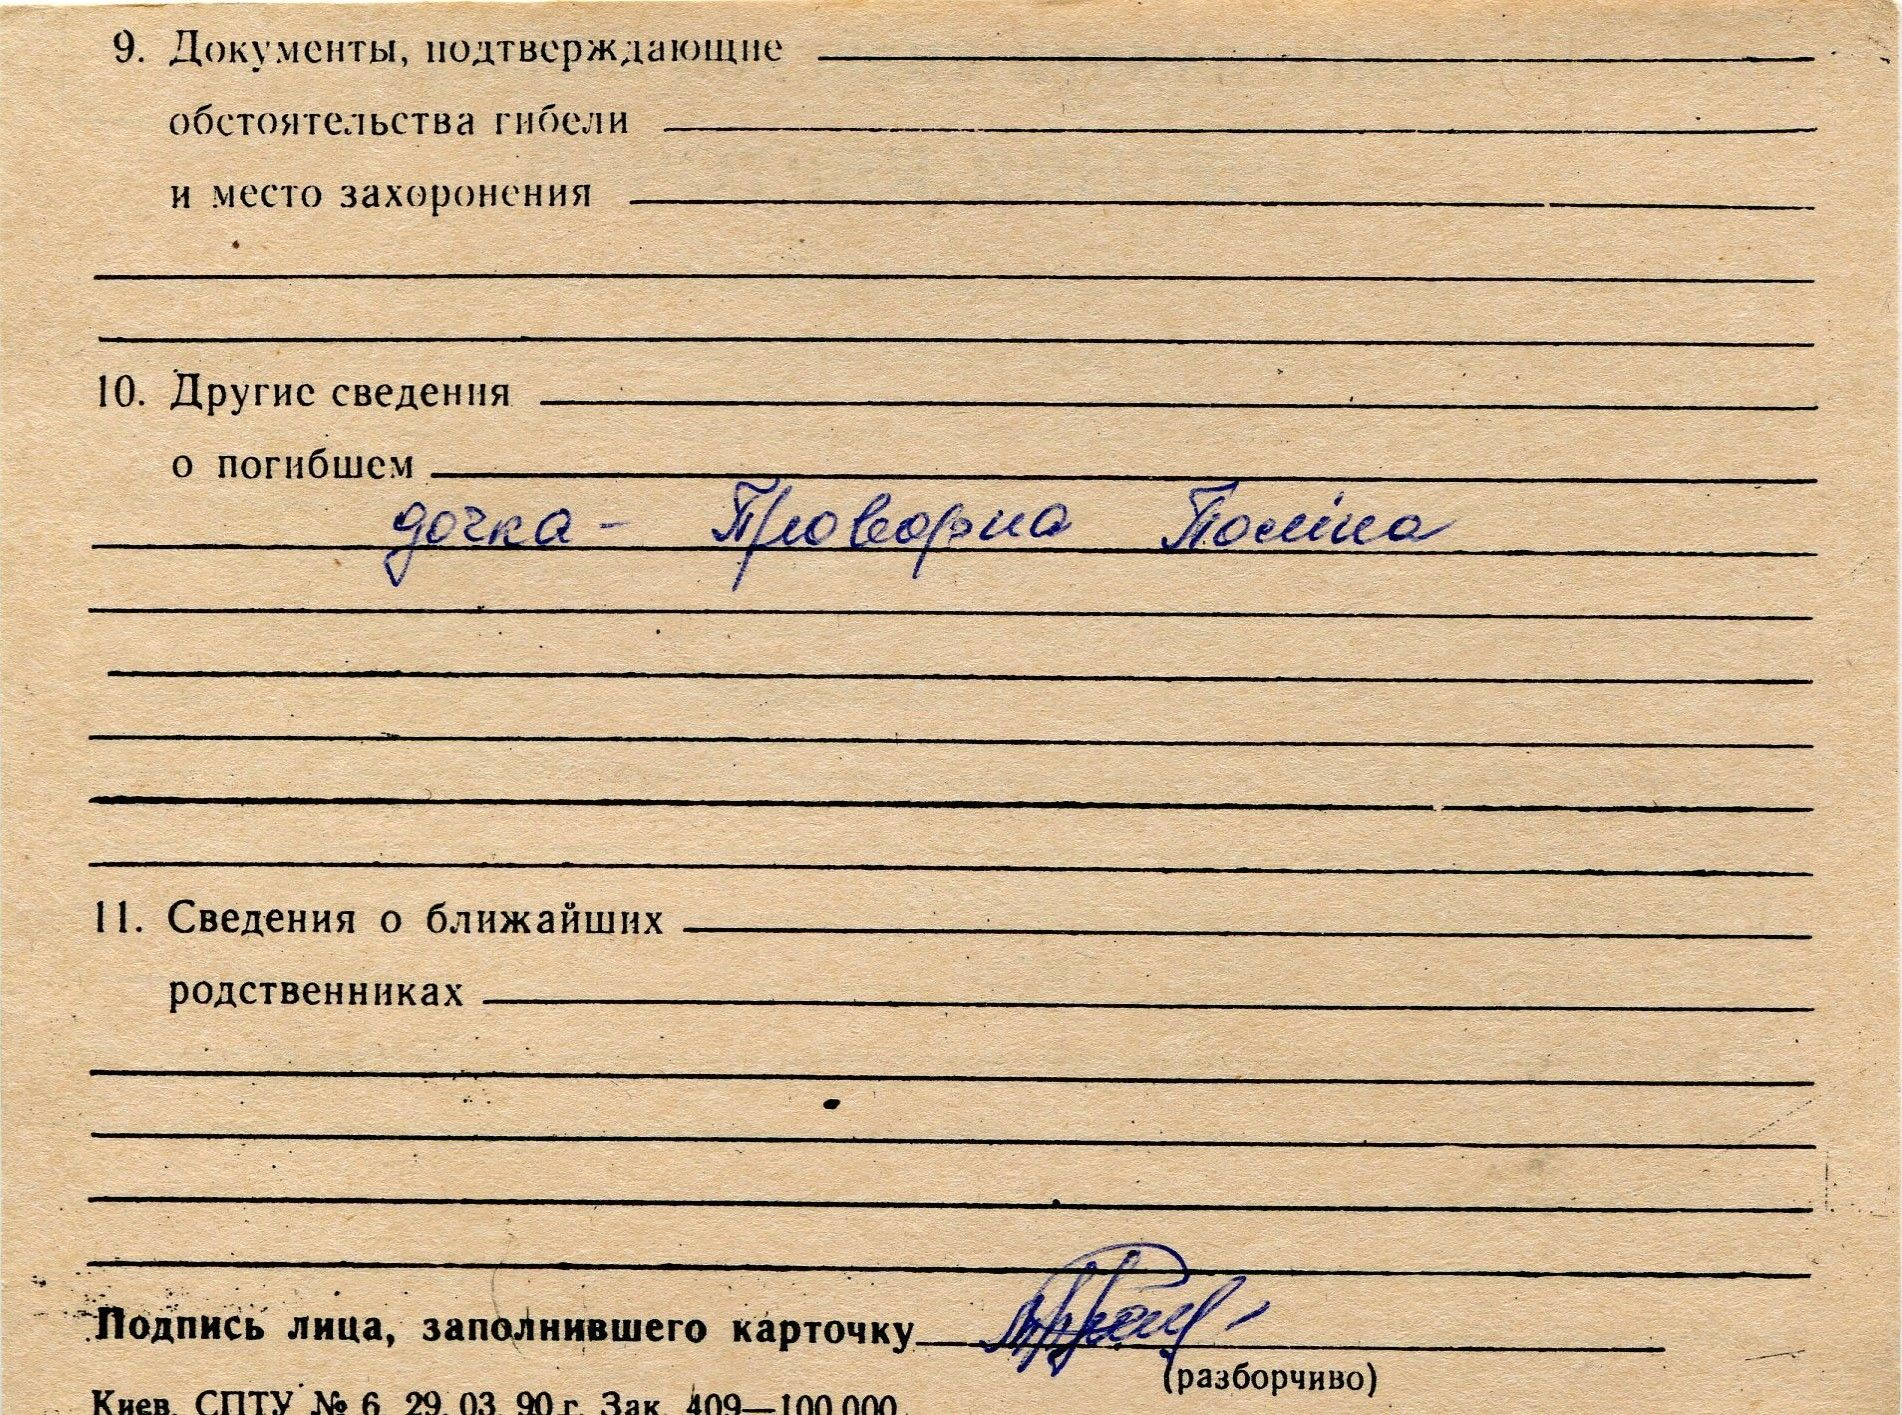 9. Документы, подтверждающие
обстоятельства гибели
и место захоронения
10. Другие сведения
о погибшем
дочка - Проворна Поліна
11. Сведения о ближайших
родственниках
Подпись лица, заполнившего карточку
(разборчиво)
Киев. СПТУ № 6 29. 03. 90 г. Зак. 409—100 000.